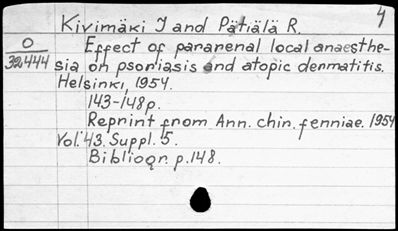 4
Kivimäki J and Pätiälä R.
O
32444
Effect of pararenal local anaesthe-
sia on psoriasis and atopic dermatitis.
Helsinki, 1954.
143-148p.
Reprint from Ann. chir. fenniae. 1954
Vol. 43. Suppl. 5.
Bibliogr. p. 148.